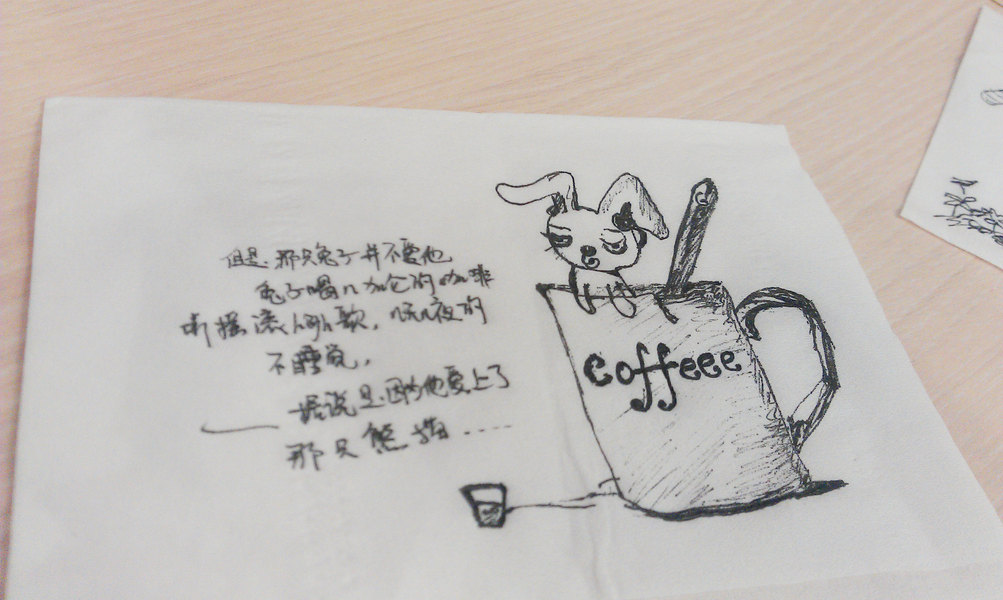 但是.那只兔子并不爱他
兔子喝n加仑的咖啡
听摇滚的歌,成夜的
不睡觉,
据说是因为他爱上了
——那只熊猫……
coffeee